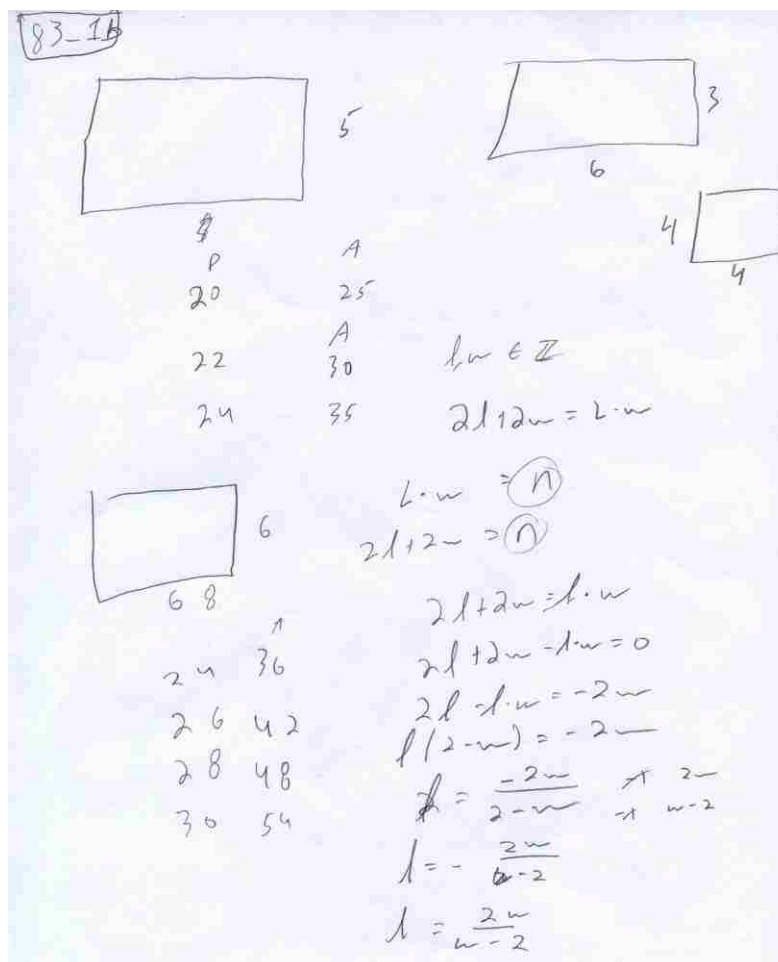 83-1b
5
3
6
4
4
P A
20 25
A
22 30
24 35
l,w ∈ ℤ
2l+2w = L·w
L·w = n
2l+2w = n
6
6 8
24 36
26 42
28 48
30 54
2l+2w = l·w
2l+2w-l·w=0
2l-l·w=-2w
l(2-w)=-2w
l = -2w/2-w
2w
w-2
l = - 2w/w-2
l = 2w/w-2